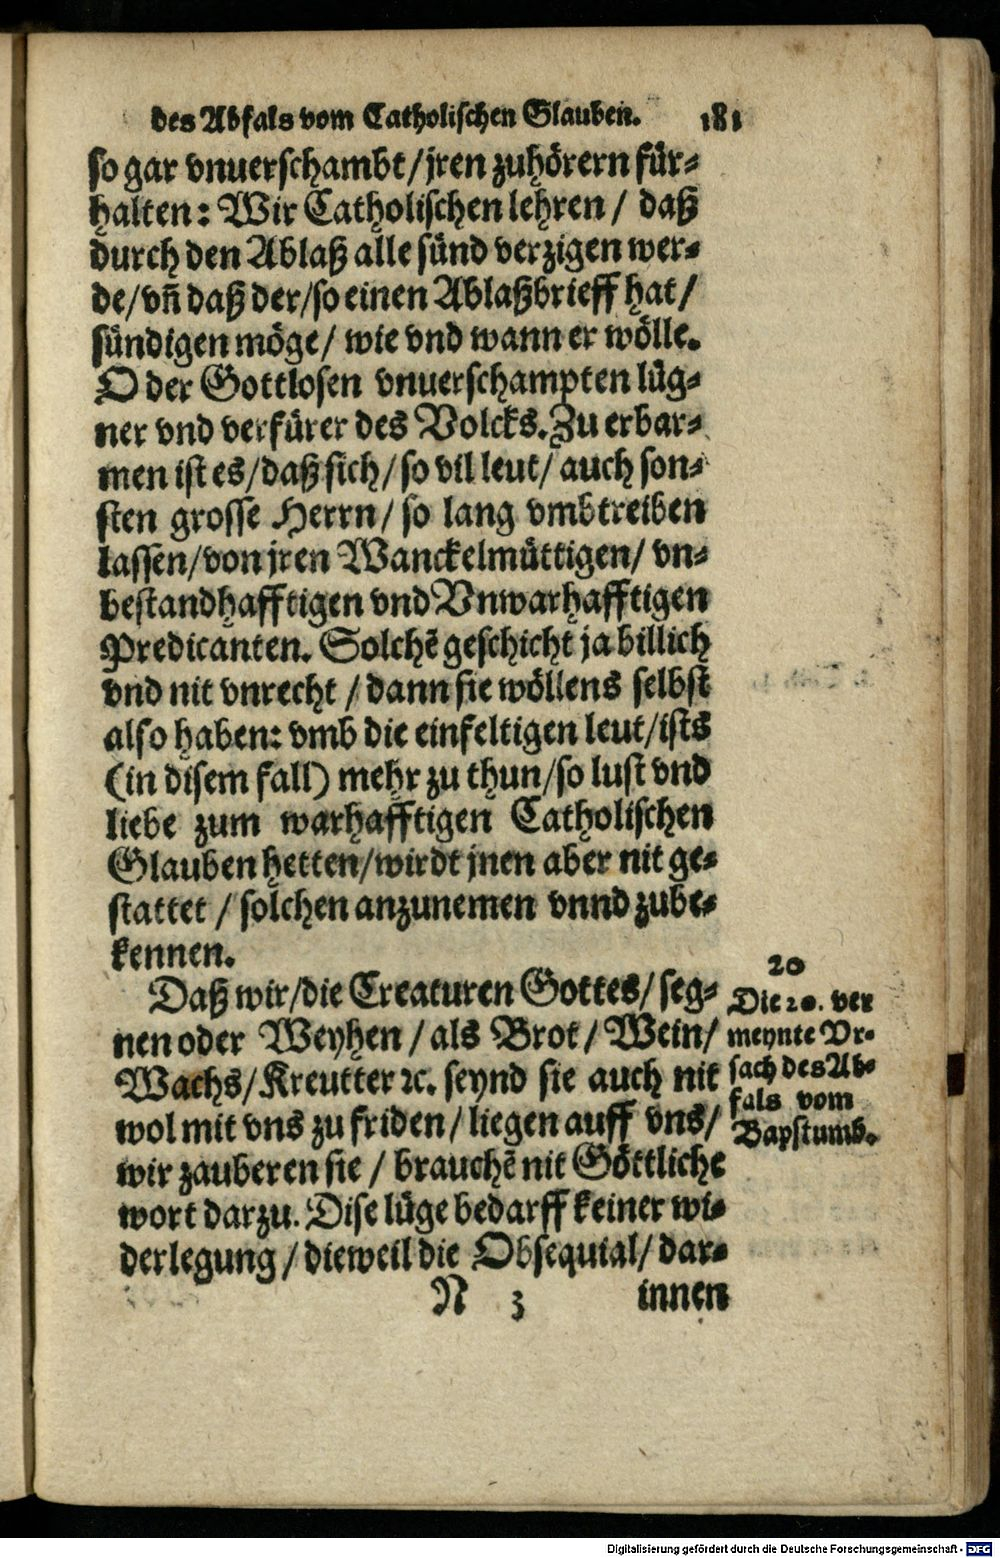 des Abfals vom Catholischen Glauben. 181
so gar vnuerschambt / jren zuhörern für-
halten: Wir Catholischen lehren / daß
durch den Ablaß alle sünd verzigen wer-
de / vñ daß der / so einen Ablaßbrieff hat /
sündigen möge / wie vnd wann er wölle.
O der Gottlosen vnuerschampten lüg-
ner vnd verfürer des Volcks. Zu erbar-
men ist es / daß sich / so vil leut / auch son-
sten grosse Herrn / so lang vmbtreiben
lassen / von jren Wanckelmüttigen / vn-
bestandhafftigen vnd Vnwarhafftigen
Predicanten. Solchẽ geschicht ja billich
vnd nit vnrecht / dann sie wöllens selbst
also haben: vmb die einfeltigen leut / ists
(in disem fall) mehr zu thun / so lust vnd
liebe zum warhafftigen Catholischen
Glauben hetten / wirdt jnen aber nit ge-
stattet / solchen anzunemen vnnd zube-
kennen.
Daß wir / die Creaturen Gottes / seg-
nen oder Weyhen / als Brot / Wein /
Wachs / Kreutter ꝛc. seynd sie auch nit
wol mit vns zu friden / liegen auff vns /
wir zauberen sie / brauchẽ nit Göttliche
wort darzu. Dise lüge bedarff keiner wi-
derlegung / dieweil die Obsequial / dar-
N 3 innen
20
Die 20. ver
meynte Vr-
sach des Ab-
fals vom
Bapstumb.
Digitalisierung gefördert durch die Deutsche Forschungsgemeinschaft - DFG